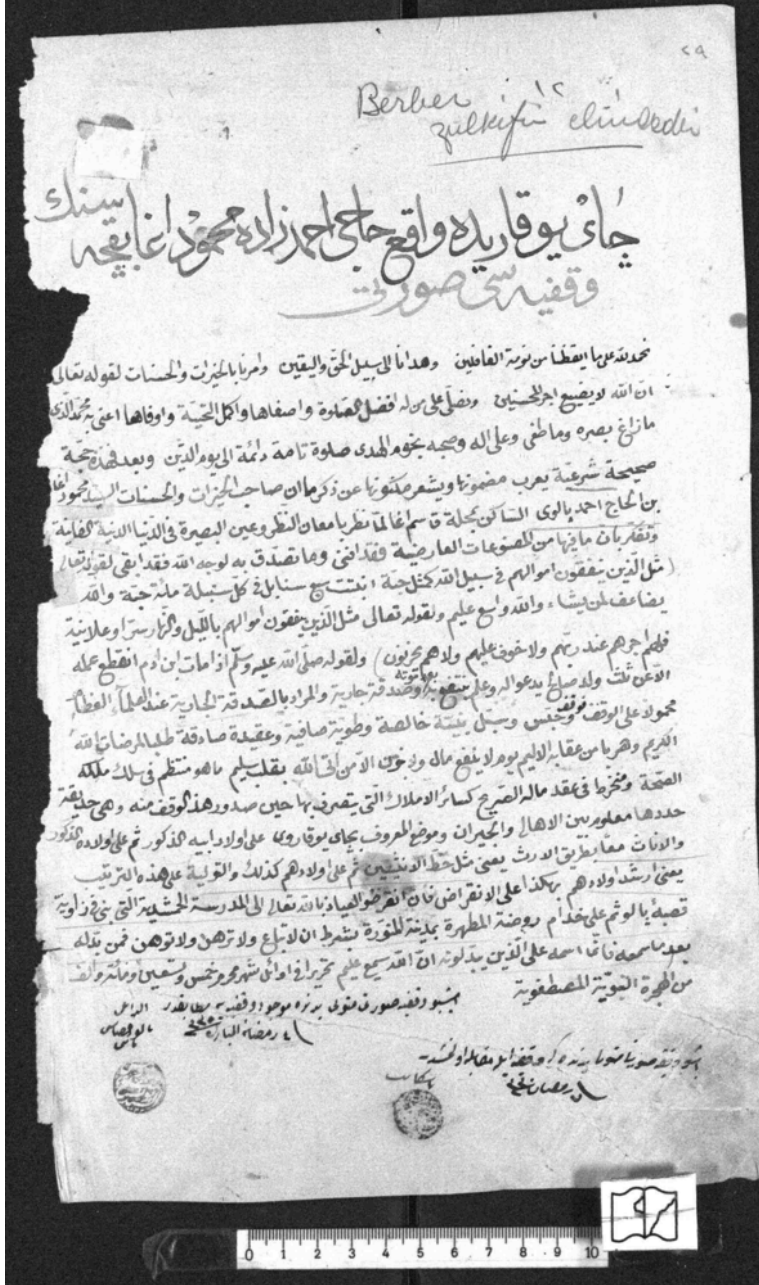 ٢٩
١٢
Berber
zülkifin elindedir
چاى يوقاريده واقع حاجى احمد زاده محمود اغا باغچه سنك
وقفيه سى صورتى
نحمد لله على ما ايقظنا من نومة الغافلين وهدانا الى سبيل الحق واليقين وامرنا بالخيرات والحسنات لقوله تعالى
ان الله لا يضيع اجر المحسنين ونصلى على من له افضل الصلوة واصفاها واكمل التحية واوفاها اعنى به محمد الذى
ما زاغ بصره وما طغى وعلى اله وصحبه نجوم الهدى صلوة تامة دائمة الى يوم الدين وبعد فهذه حجة
صحيحة شرعية يعرب مضمونها ويشعر مكنونها عن ذكر ما ان صاحب الخيرات والحسنات السيد محمود اغا
بن الحاج احمد پالوى الساكن بمحلة قاسم اغا لما نظر بامعان النظر وعين البصيرة فى الدنيا الدنية الفانية
وتفكر بان ما فيها من المصنوعات العارضية فقد افنى وما تصدق به لوجه الله فقد ابقى لقوله تعالى
(مثل الذين ينفقون اموالهم فى سبيل الله كمثل حبة انبتت سبع سنابل فى كل سنبلة مائة حبة والله
يضاعف لمن يشاء والله واسع عليم ولقوله تعالى مثل الذين ينفقون اموالهم بالليل والنهار سرا وعلانية
فلهم اجرهم عند ربهم ولا خوف عليهم ولا هم يحزنون) ولقوله صلى الله عليه وسلم اذا مات ابن ادم انقطع عمله
الا عن ثلث ولد صالح يدعو له وعلم ينتفع به بعد موته وصدقة جارية والمراد بالصدقة الجارية عند العلماء العظام
محمولا على الوقف فوقف وحبس وسبل بنية خالصة وطوية صافية وعقيدة صادقة طلبا لمرضات الله
الكريم وهربا من عقابه الاليم يوم لا ينفع مال ولا بنون الا من اتى الله بقلب سليم ما هو منتظم فى سلك ملكه
الصحة ومنخرط فى عقد ماله الصريح كسائر الاملاك التى يتصرف بها حين صدور هذا الوقف منه وهى حديقة
حددها معلوم بين الاهالى والجيران وموضع المعروف بچاى يوقاروى على اولاد ابيه الذكور ثم على اولاده الذكور
والاناث معا بطريق الارث يعنى مثل حظ الانثيين ثم على اولادهم كذلك والتولية على هذه الترتيب
يعنى ارشد اولادهم هكذا على الانقراض فان انقرض والعياذ بالله تعالى الى المدرسة الجمشدية التى بنى فى زاوية
قصبة پالو ثم على خدام روضة المطهرة بمدينة المنورة بشرط ان لا تباع ولا ترهن ولا توهن فمن بدله
بعد ما سمعه فانما اثمه على الذين يبدلونه ان الله سميع عليم تحريرا فى اوائل شهر محرم خمس وتسعين ومائة والف
من الهجرة النبوية المصطفوية
اشبو وقفيه صورتى متولى يدنده موجود وقفيه يه مطابقدر
رمضان المبارك
اشبو وقفيه صورتى متولى يدنده كى وقفيه ايله مقابله اولنمشدر
كاتب
رمضان
0 1 2 3 4 5 6 7 8 9 10